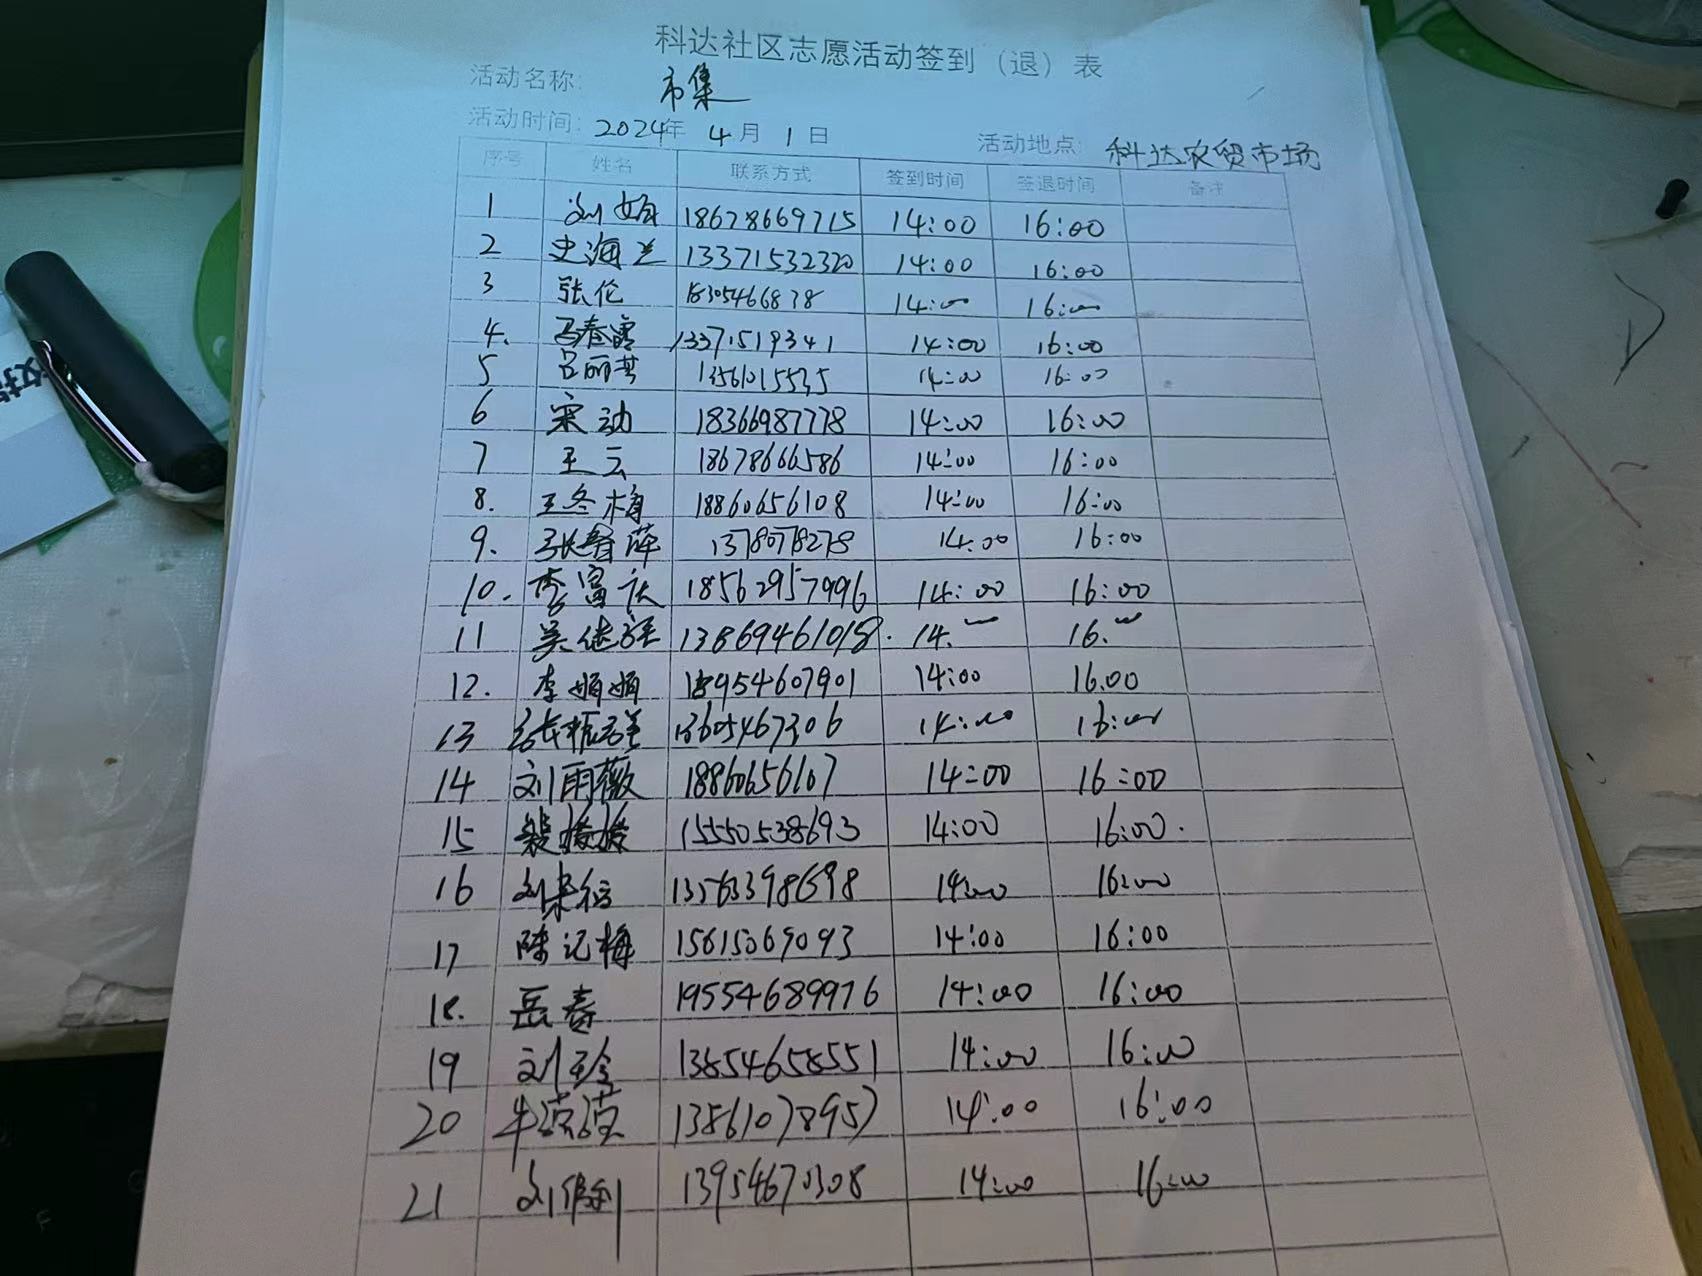 科达社区志愿活动签到（退）表
活动名称: 市集
活动时间: 2024年 4月 1日 活动地点: 科达农贸市场
序号 姓名 联系方式 签到时间 签退时间 备注
1 刘娟 18678669715 14:00 16:00
2 史海兰 13371532320 14:00 16:00
3 张伦 18305466878 14:00 16:00
4. 马春霞 13371519341 14:00 16:00
5 吕丽芸 13561015535 14:00 16:00
6 宋动 18366987778 14:00 16:00
7 王云 18678666586 14:00 16:00
8. 王冬梅 18860656108 14:00 16:00
9. 萍 14:00 16:00
10. 李富 18562957996 14:00 16:00
11 吴继 13869461018. 14. 16.
12. 李娟娟 18954607901 14:00 16.00
13 13605467306 14:00 16:00
14 刘雨薇 18860656107 14:00 16:00
15 媛媛 15550538693 14:00 16:00.
16 刘 13563398698 14:00 16:00
17 陈记梅 15615069093 14:00 16:00
18. 岳春 19554689976 14:00 16:00
19 刘珍 13854658551 14:00 16:00
20 牛 13561078957 14:00 16:00
21 刘 13954670308 14:00 16:00